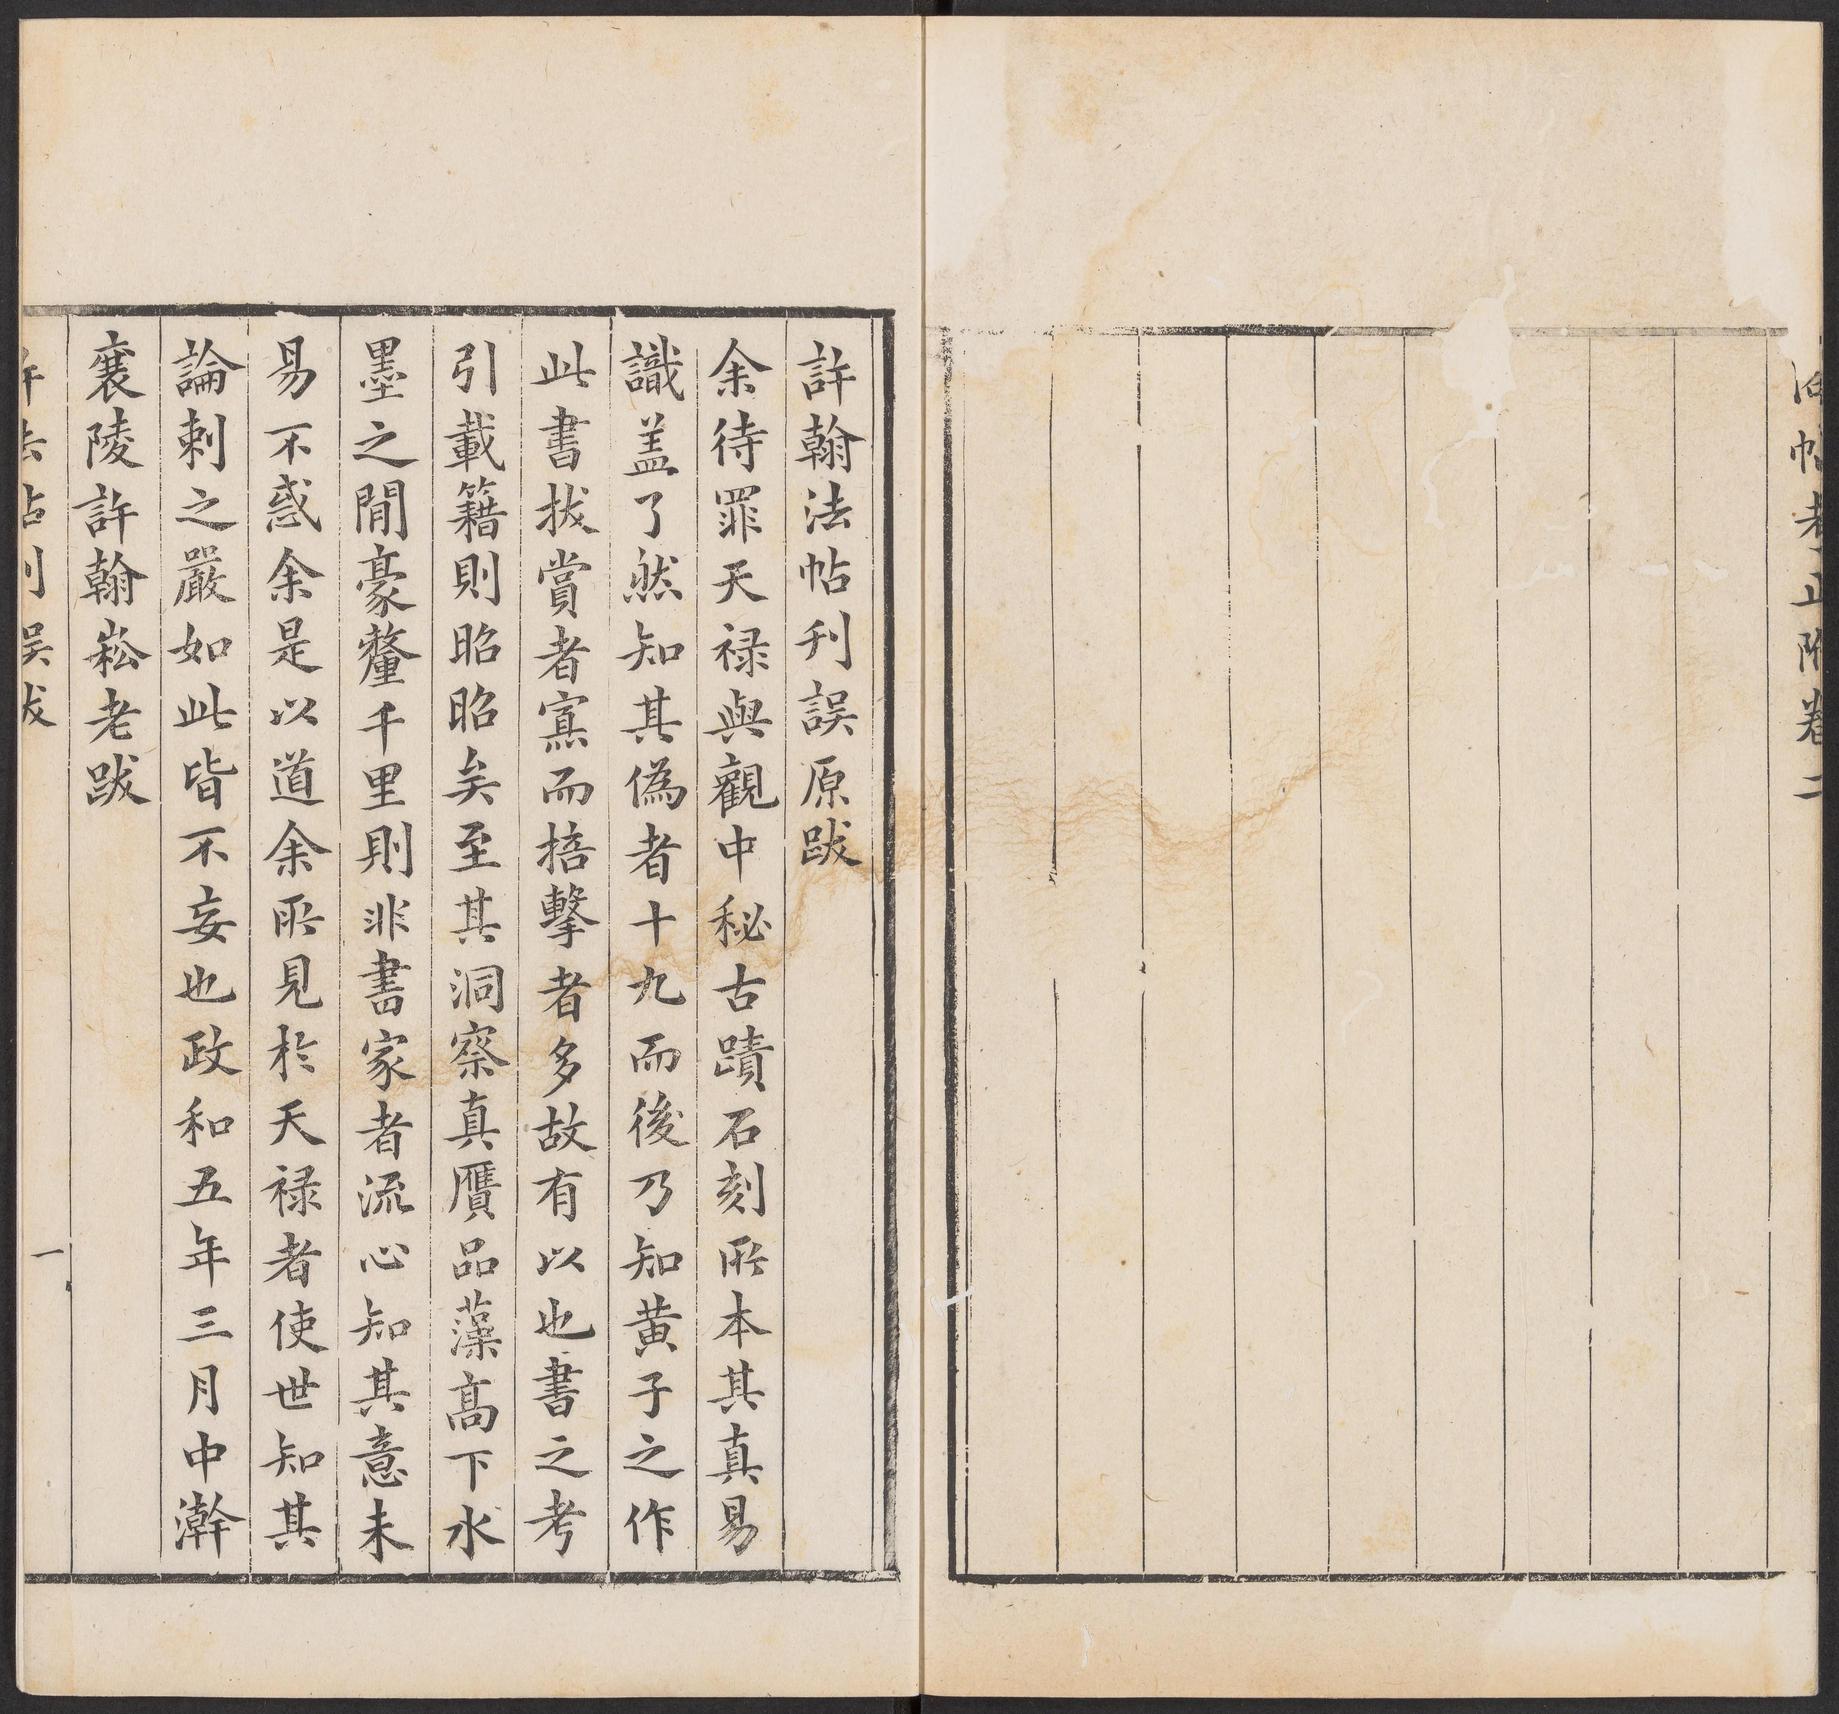 帖考正附卷二
許翰法帖刋誤原跋
余待罪天禄與觀中秘古蹟石刻所本其真易
識盖了然知其偽者十九而後乃知黄子之作
此書拔賞者寡而掊擊者多故有以也書之考
引載籍則昭昭矣至其洞察真贋品藻髙下水
墨之閒豪釐千里則非書家者流心知其意未
易不惑余是以道余所見於天禄者使世知其
論刺之嚴如此皆不妄也政和五年三月中澣
襄陵許翰崧老跋
許法帖刋誤跋
一